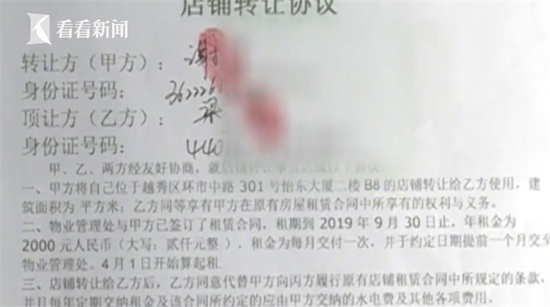 看看新闻
KNEWS
店铺转让协议
转让方（甲方）：谢
身份证号码：362226
顶让方（乙方）：梁
身份证号码：440
甲、乙、两方经友好协商，就店铺转让事宜达成以下协议：
一、甲方将自己位于越秀区环市中路 301 号怡东大厦二楼 B8 的店铺转让给乙方使用，建
筑面积为 平方米；乙方同等享有甲方在原有房屋租赁合同中所享有的权利与义务。
二、物业管理处与甲方已签订了租赁合同，租期到 2019 年 9 月 30 日止，年租金为
2000 元人民币（大写：贰仟元整），租金为每月交付一次，并于约定日期提前一个月交至
物业管理处。4 月 1 日开始算起租.
三、店铺转让给乙方后，乙方同意代替甲方向丙方履行原有店铺租赁合同中所规定的条款，
并且每年定期交纳租金及该合同所约定的应由甲方交纳的水电费及其他各项费用。